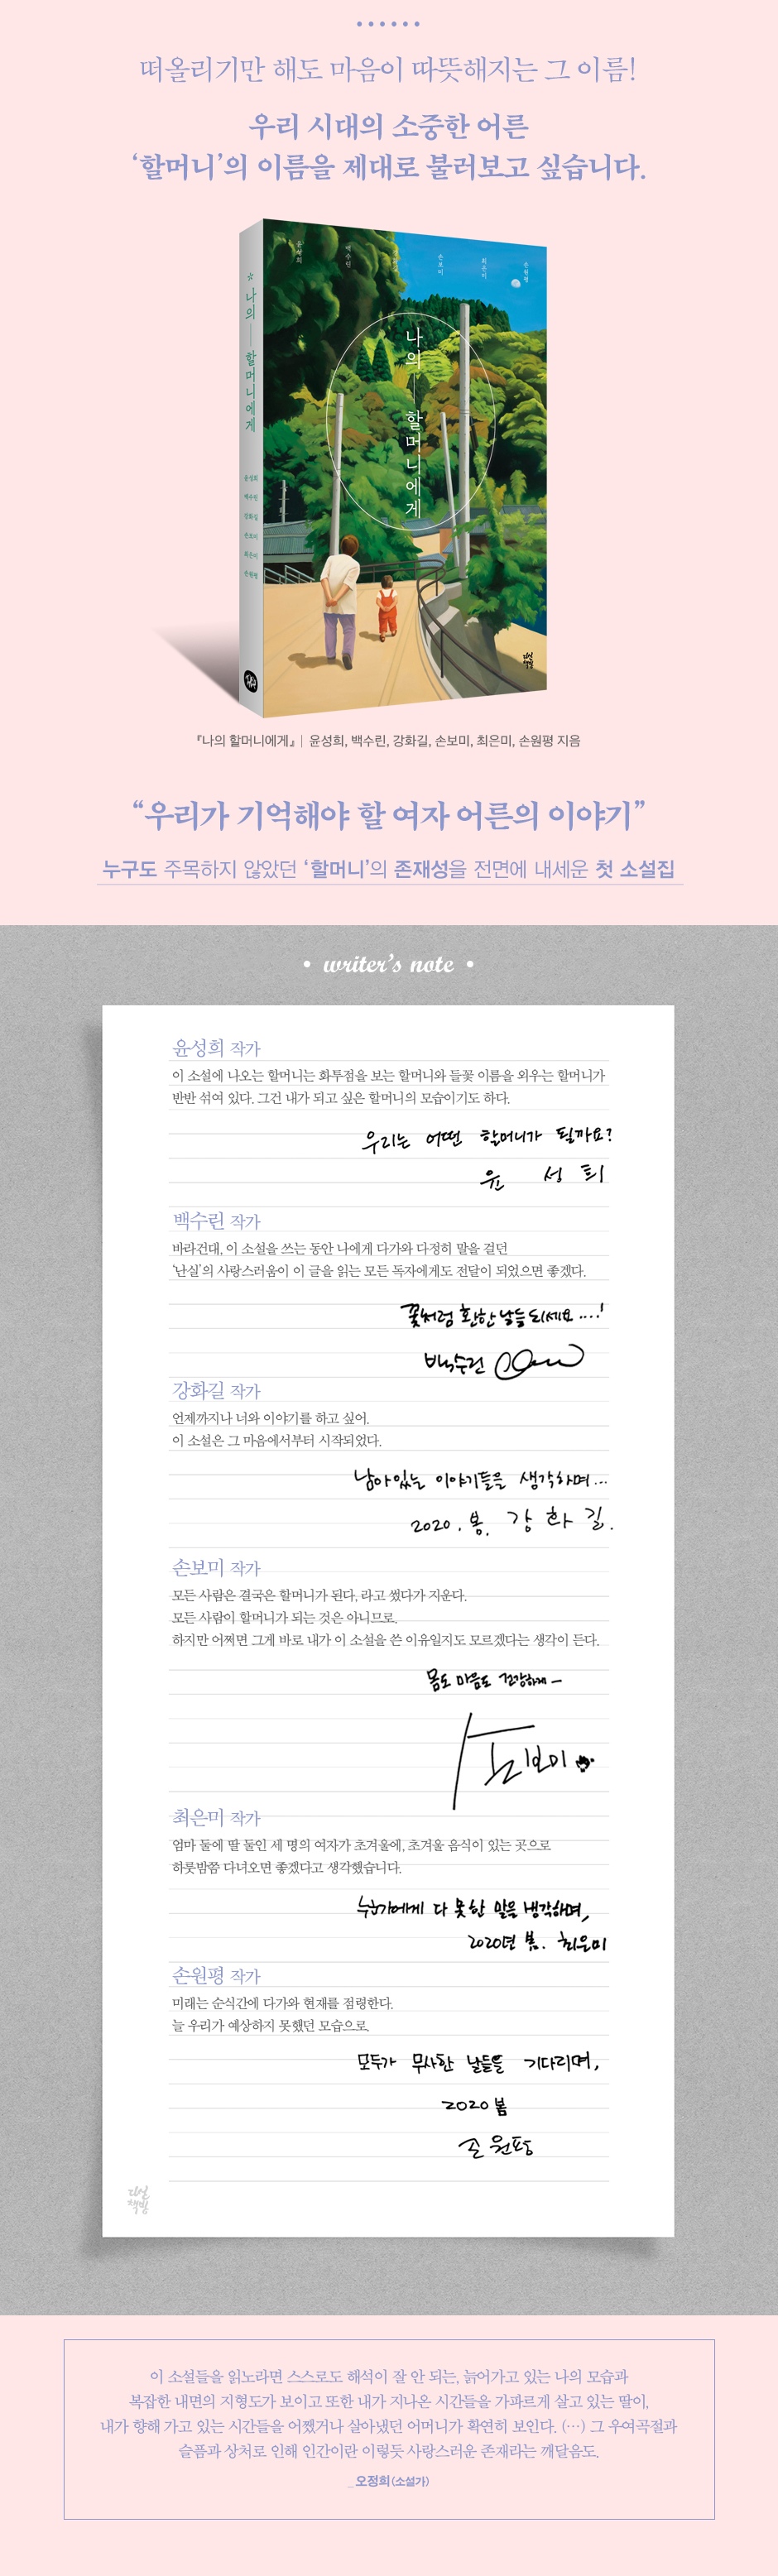 떠올리기만 해도 마음이 따뜻해지는 그 이름!
우리 시대의 소중한 어른
‘할머니’의 이름을 제대로 불러보고 싶습니다.
윤성희
백수린
손보미
최은미
손원평
나의 할머니에게
나의 할머니에게
윤성희
백수린
강화길
손보미
최은미
손원평
다산책방
『나의 할머니에게』 | 윤성희, 백수린, 강화길, 손보미, 최은미, 손원평 지음
“우리가 기억해야 할 여자 어른의 이야기”
누구도 주목하지 않았던 ‘할머니’의 존재성을 전면에 내세운 첫 소설집
• writer’s note •
윤성희 작가
이 소설에 나오는 할머니는 화투점을 보는 할머니와 들꽃 이름을 외우는 할머니가
반반 섞여 있다. 그건 내가 되고 싶은 할머니의 모습이기도 하다.
우리는 어떤 할머니가 될까요?
윤 성 희
백수린 작가
바라건대, 이 소설을 쓰는 동안 나에게 다가와 다정히 말을 걸던
‘난실’의 사랑스러움이 이 글을 읽는 모든 독자에게도 전달이 되었으면 좋겠다.
꽃처럼 환한 날들 되세요....!
백수린
강화길 작가
언제까지나 너와 이야기를 하고 싶어.
이 소설은 그 마음에서부터 시작되었다.
남아있는 이야기들을 생각하며...
2020. 봄. 강 화 길.
손보미 작가
모든 사람은 결국은 할머니가 된다, 라고 썼다가 지운다.
모든 사람이 할머니가 되는 것은 아니므로.
하지만 어쩌면 그게 바로 내가 이 소설을 쓴 이유일지도 모르겠다는 생각이 든다.
몸도 마음도 건강하게 -
손보미
최은미 작가
엄마 둘에 딸 둘인 세 명의 여자가 초겨울에, 초겨울 음식이 있는 곳으로
하룻밤쯤 다녀오면 좋겠다고 생각했습니다.
다 못한 말을 생각하며,
2020년 봄. 최은미
손원평 작가
미래는 순식간에 다가와 현재를 점령한다.
늘 우리가 예상하지 못했던 모습으로.
모두가 무사한 날들을 기다리며,
2020 봄
손 원평
다산책방
이 소설들을 읽노라면 스스로도 해석이 잘 안 되는, 늙어가고 있는 나의 모습과
복잡한 내면의 지형도가 보이고 또한 내가 지나온 시간들을 가파르게 살고 있는 딸이,
내가 향해 가고 있는 시간들을 어쨌거나 살아냈던 어머니가 확연히 보인다. (…) 그 우여곡절과
슬픔과 상처로 인해 인간이란 이렇듯 사랑스러운 존재라는 깨달음도.
_오정희(소설가)